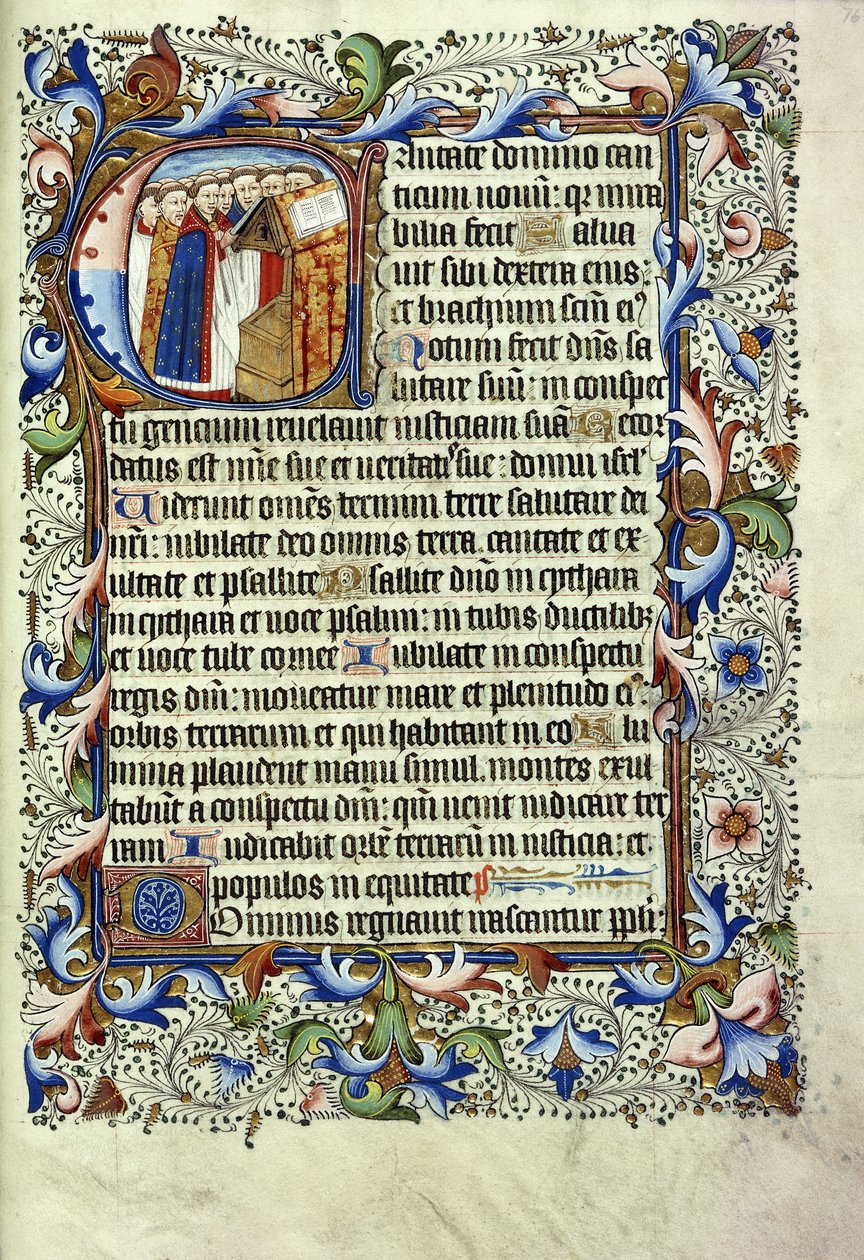 Cantate domino can
ticum nouu: qr mira
bilia fecit Salua
uit sibi dextera eius:
et brachium scm ei9
Notum fecit dns sa
lutare suu: in conspec
tu gencium reuelauit iusticiam sua Recor
datus est mie sue et ueritatis sue: domui isrl
Uiderunt omes termini terre salutare dei
nri: iubilate deo omnis terra. cantate et ex-
ultate et psallite Psallite dno in cythara
in cythara et uoce psalmi: in tubis ductilibz
et uoce tube cornee Iubilate in conspectu
regis dni: moueatur mare et plenitudo ei9:
orbis terrarum et qui habitant in eo Flu
mina plaudent manu simul. montes exul
tabut a conspectu dni: qm uenit iudicare ter
ram Iudicabit orbe terraru in iusticia: et
populos in equitate ps
Dominus regnauit irascantur ppli: